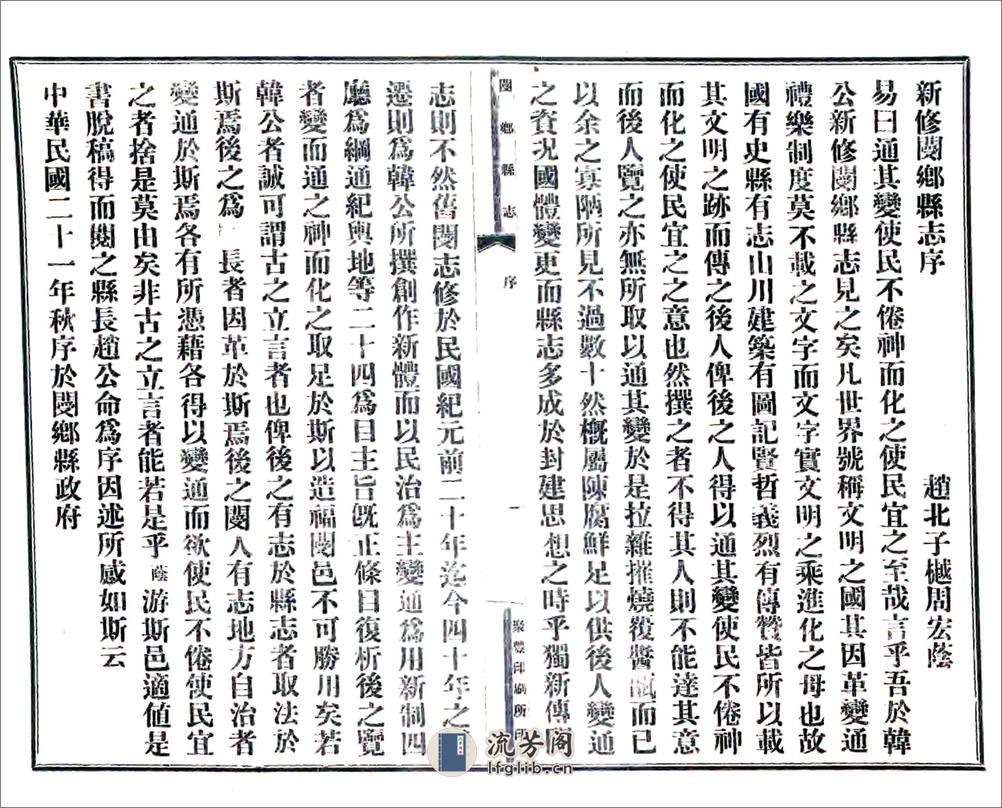 新修閿鄉縣志序
趙北子樾周宏蔭
易曰通其變使民不倦神而化之使民宜之至哉言乎吾於韓
公新修閿鄉縣志見之矣凡世界號稱文明之國其因革變通
禮樂制度莫不載之文字而文字實文明之乘進化之母也故
國有史縣有志山川建築有圖記賢哲義烈有傳贊皆所以載
其文明之跡而傳之後人俾後之人得以通其變使民不倦神
而化之使民宜之之意也然撰之者不得其人則不能達其意
而後人覽之亦無所取以通其變於是拉雜摧燒覆醬瓿而已
以余之寡陋所見不過數十然概屬陳腐鮮足以供後人變通
之資况國體變更而縣志多成於封建思想之時乎獨新傳閿
閿鄉縣志
序
一
聚豐印刷所印
志則不然舊閿志修於民國紀元前二十年迄今四十年之
遷則為韓公所撰創作新體而以民治為主變通為用新制四
廳為綱通紀輿地等二十四為目主旨旣正條目復析後之覽
者變而通之神而化之取足於斯以造福閿邑不可勝用矣若
韓公者誠可謂古之立言者也俾後之有志於縣志者取法於
斯焉後之為 長者因革於斯焉後之閿人有志地方自治者
變通於斯焉各有所憑藉各得以變通而欲使民不倦使民宜
之者捨是莫由矣非古之立言者能若是乎蔭游斯邑適値是
書脫稿得而閱之縣長趙公命為序因述所感如斯云
中華民國二十一年秋序於閿鄉縣政府
流芳阁
lfglib.cn